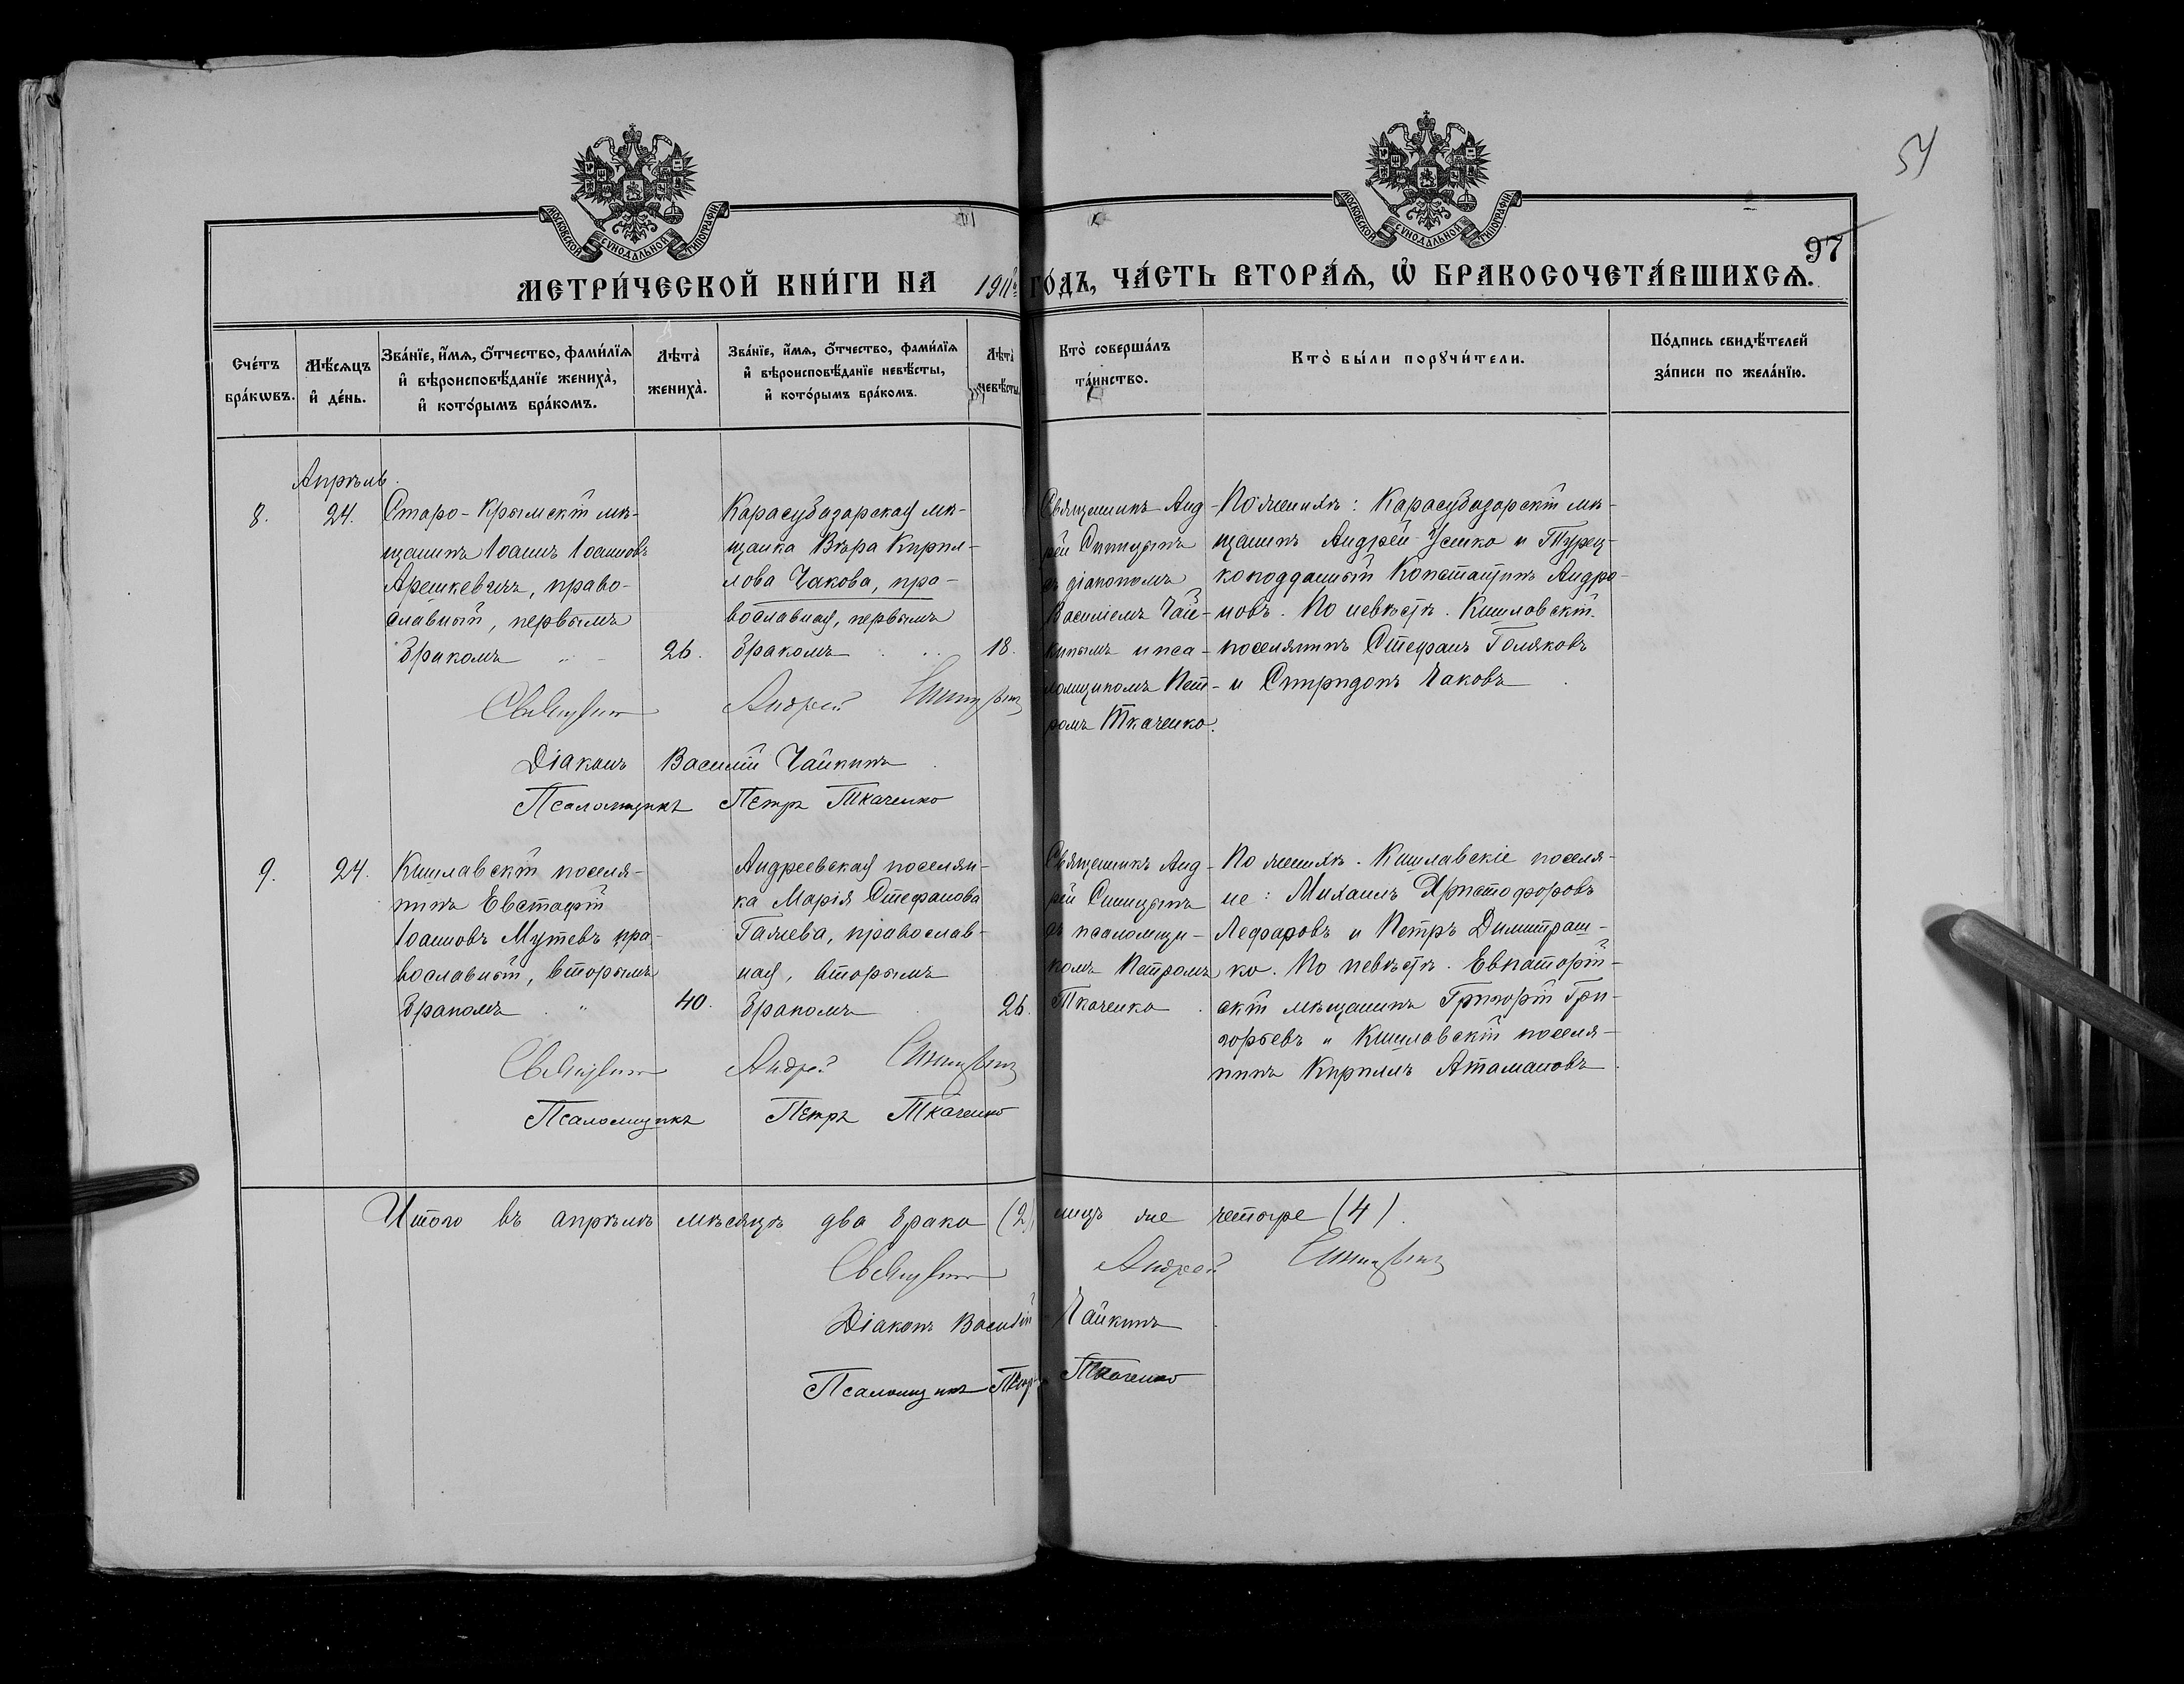 54
97
МОСКОВСКОЙ СѴНОДАЛЬНОЙ ТИПОГРАФІИ
МОСКОВСКОЙ СѴНОДАЛЬНОЙ ТИПОГРАФІИ
МЕТРИ́ЧЕСКОЙ КНИ́ГИ НА 1911й ГО́ДЪ, ЧА́СТЬ ВТОРА́Ѧ, Ѡ҆ БРАКОСОЧЕТА́ВШИХСѦ.
Сче́тъ
бра́кѡвъ.
Мѣ́сѧцъ
и҆ де́нь.
Зва́нїе, и҆́мѧ, ѻ҆́тчество, фами́лїѧ
и҆ вѣроисповѣ́данїе жениха̀,
и҆ кото́рымъ бра́комъ.
Лѣта̀
жениха̀.
Зва́нїе, и҆́мѧ, ѻ҆́тчество, фами́лїѧ
и҆ вѣроисповѣ́данїе невѣ́сты,
и҆ кото́рымъ бра́комъ.
Лѣта̀
невѣ́сты
Кто̀ соверша́лъ
та́инство.
Кто̀ бы́ли порꙋчи́тели.
По́дпись свидѣ́телей
за́писи по жела́нїю.
Апрѣль.
8.
24.
Старо-Крымскій мѣ-
щанинъ Іоаннъ Іоанновъ
Арешкевичъ, право-
славный, первымъ
бракомъ
26.
Карасубазарская мѣ-
щанка Вѣра Кирил-
лова Чакова, пра-
вославная, первымъ
бракомъ
18.
Священникъ Анд-
рей Синицынъ
съ діакономъ
Василіемъ Чай-
кинымъ и пса-
ломщикомъ Пет-
ромъ Ткаченко.
По женихѣ: Карасубазарскій мѣ-
щанинъ Андрей Усенко и Турец-
коподданный Константинъ Андро-
новъ. По невѣстѣ. Кишлавскій
поселянинъ Стефанъ Голяковъ
и Спиридонъ Чаковъ
Священникъ Андрей Синицынъ
Діаконъ Василій Чайкинъ
Псаломщикъ Петръ Ткаченко
9.
24.
Кишлавскій поселя-
нинъ Евстафій
Іоанновъ Мутевъ пра-
вославный, вторымъ
бракомъ
40.
Андреевская поселян-
ка Марія Стефанова
Галиева, православ-
ная, вторымъ
бракомъ
26.
Священникъ Анд-
рей Синицынъ
съ псаломщи-
комъ Петромъ
Ткаченко
По женихѣ. Кишлавскіе поселя-
не: Михаилъ Христофоровъ
Лефаровъ и Петръ Димитраш-
ко. По невѣстѣ. Евпаторій-
скій мѣщанинъ Григорій Гри-
горьевъ и Кишлавскій поселя-
нинъ Кириллъ Атамановъ
Священникъ Андрей Синицынъ
Псаломщикъ Петръ Ткаченко
Итого въ апрѣлѣ мѣсяцѣ два брака (2) лицъ же четыре (4).
Священникъ Андрей Синицынъ
Діаконъ Василій Чайкинъ
Псаломщикъ Петръ Ткаченко